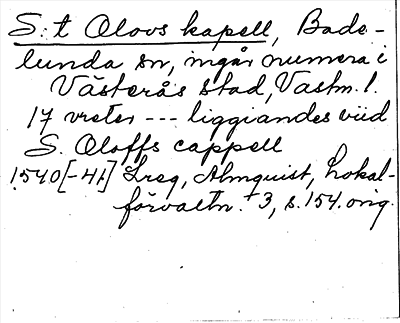 S:t Olovs kapell, Bade-
lunda sn, ingår numera i
Västerås stad, Vastm. l.
17 vreter --- liggiandes viid
S. Oloffs cappell
1540[-41] Lreg, Almquist, Lokal-
förvaltn. 3, s. 154. orig.